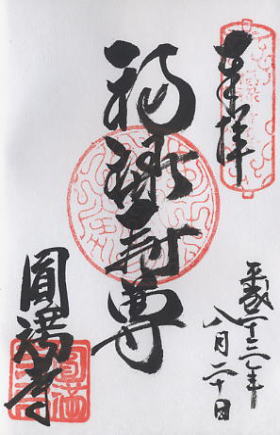 奉拝
平成二十三年
八月二十日
福禄寿尊
圓満寺